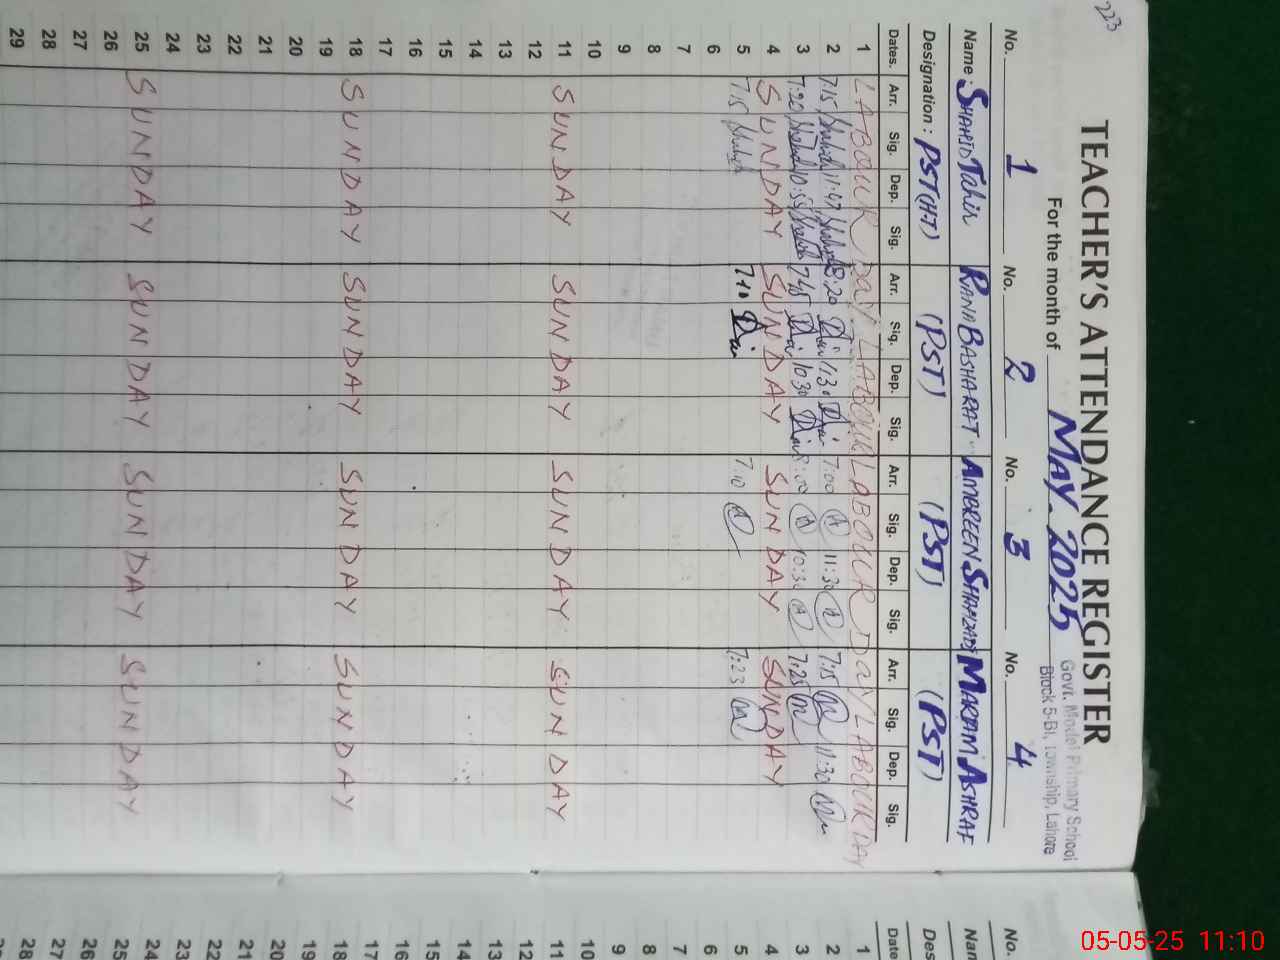 223
TEACHER'S ATTENDANCE REGISTER
For the month of MAY. 2025
Govt. Model Primary School
Block 5-B1, Township, Lahore
No. 1 No. 2 No. 3 No. 4
Name: SHAHID Tahir RANA BASHARAT AMBREEN SHAHZADI MARYAM ASHRAF
Designation: PST(H.T) (PST) (PST) (PST)
Dates. Arr. Sig. Dep. Sig. Arr. Sig. Dep. Sig. Arr. Sig. Dep. Sig. Arr. Sig. Dep. Sig.
1 LABOUR DAY LABOUR LABOUR DAY LABOUR DAY
2 7:15 11:47 8:20 1130 7:00 11:30 7:15 11:30
3 7:20 10:55 7:45 1030 8:00 10:30 7:25
4 SUNDAY SUNDAY SUNDAY SUNDAY
5 7:15 710 7:10 7:23
6
7
8
9
10
11 SUNDAY SUNDAY SUNDAY SUNDAY
12
13
14
15
16
17
18 SUNDAY SUNDAY SUNDAY SUNDAY
19
20
21
22
23
24
25 SUNDAY SUNDAY SUNDAY SUNDAY
26
27
28
29
No.
Nam
Des
Date
1
2
3
4
5
6
7
8
9
10
11
12
13
14
15
16
17
18
19
20
21
22
23
24
25
26
27
28
05-05-25 11:10